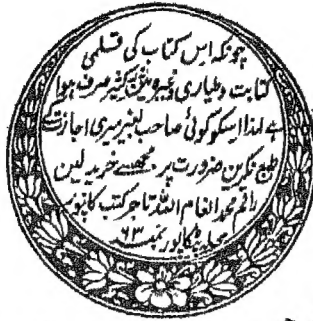 چونکہ اس کتاب کی قسلمی
کتابت و طیاری وغیرہ مین کثیر صرف ہوا
ہے لہذا اسکو کوئی صاحب بغیر میری اجازت کے
طبع نکرین ضرورت پر مجھسے خرید لین
راقم محمد انعام اللہ تاجر کتب کانپور
پٹکاپور نمبر ۶۳